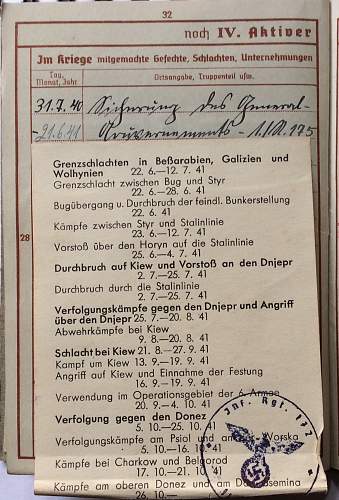 32
noch IV. Aktiver
Im Kriege mitgemachte Gefechte, Schlachten, Unternehmungen
Tag, Monat, Jahr
Ortsangabe, Truppenteil usw.
31.7.40 Sicherung des General-
-21.6.41 Gouvernements -
28
Grenzschlachten in Beßarabien, Galizien und
Wolhynien 22. 6.—12. 7. 41
Grenzschlacht zwischen Bug und Styr
22. 6.—28. 6. 41
Bugübergang u. Durchbruch der feindl. Bunkerstellung
22. 6. 41
Kämpfe zwischen Styr und Stalinlinie
23. 6.—12. 7. 41
Vorstoß über den Horyn auf die Stalinlinie
25. 6.—4. 7. 41
Durchbruch auf Kiew und Vorstoß an den Dnjepr
2. 7.—25. 7. 41
Durchbruch durch die Stalinlinie
2. 7.—25. 7. 41
Verfolgungskämpfe gegen den Dnjepr und Angriff
über den Dnjepr 25. 7.—20. 8. 41
Abwehrkämpfe bei Kiew
9. 8.—20. 8. 41
Schlacht bei Kiew 21. 8.—27. 9. 41
Kampf um Kiew 13. 9.—19. 9. 41
Angriff auf Kiew und Einnahme der Festung
16. 9.—19. 9. 41
Verwendung im Operationsgebiet der 6. Armee
20. 9.—4. 10. 41
Verfolgung gegen den Donez
5. 10.—25. 10. 41
Verfolgungskämpfe am Psiol und an der Worska
5. 10.—16. 10. 41
Kämpfe bei Charkow und Belgorod
17. 10.—21. 10. 41
Kämpfe am oberen Donez und am Donezsemina
26. 10.—
Inf. Rgt.